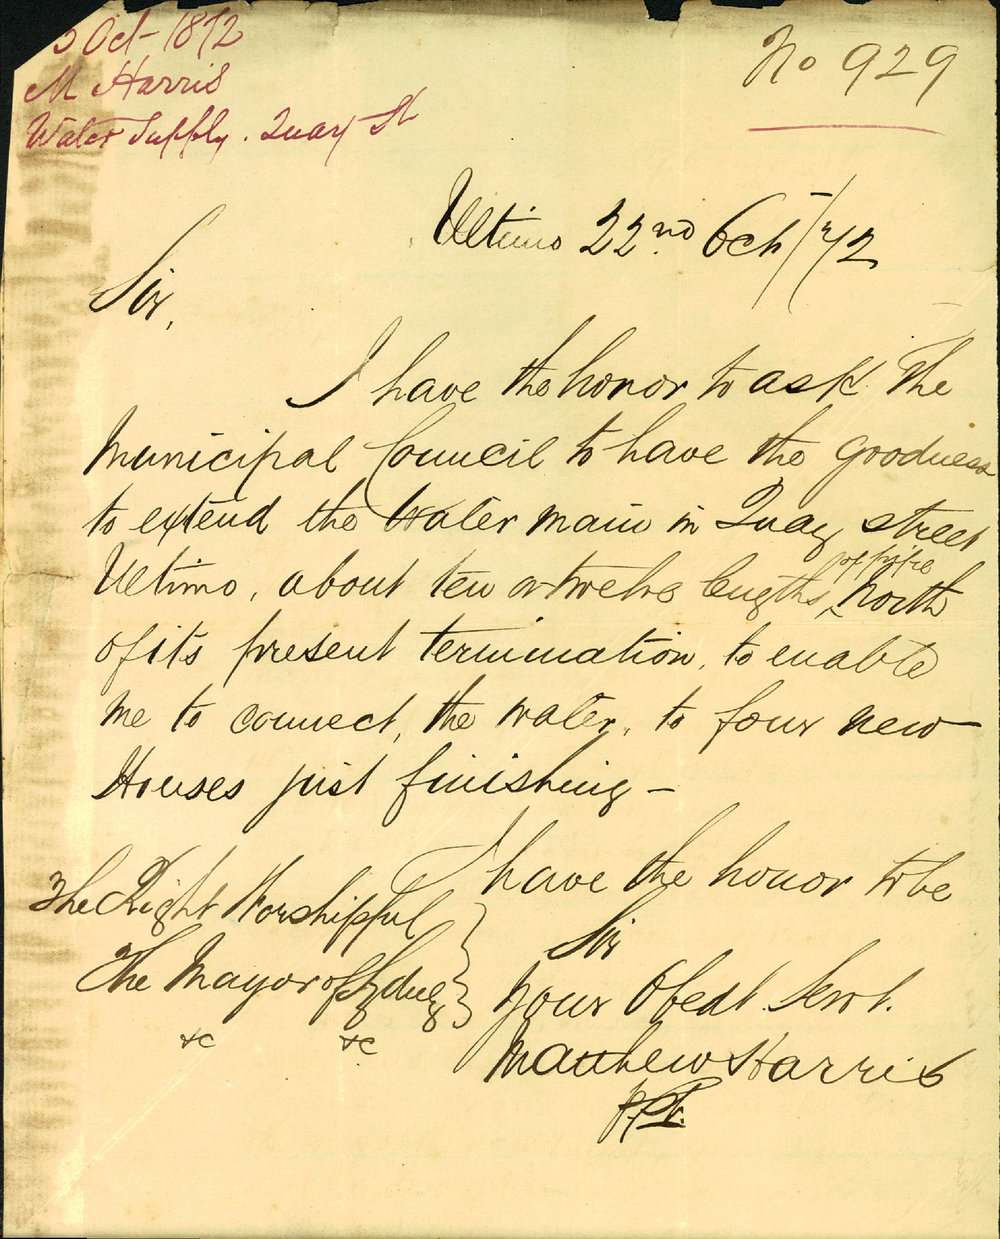 Oct - 1872
M Harris
Water Supply. Quay St
No 929
Ultimo 22nd Oct/72
Sir,
I have the honor to ask the
Municipal Council to have the goodness
to extend the Water main in Quay street
Ultimo, about ten or twelve lengths of pipe North
of its present termination, to enable
me to connect, the water, to four new
Houses just finishing -
I have the honor to be
Sir
Your Obedt. Servt.
Matthew Harris
The Right Worshipful
The Mayor of Sydney
&c &c